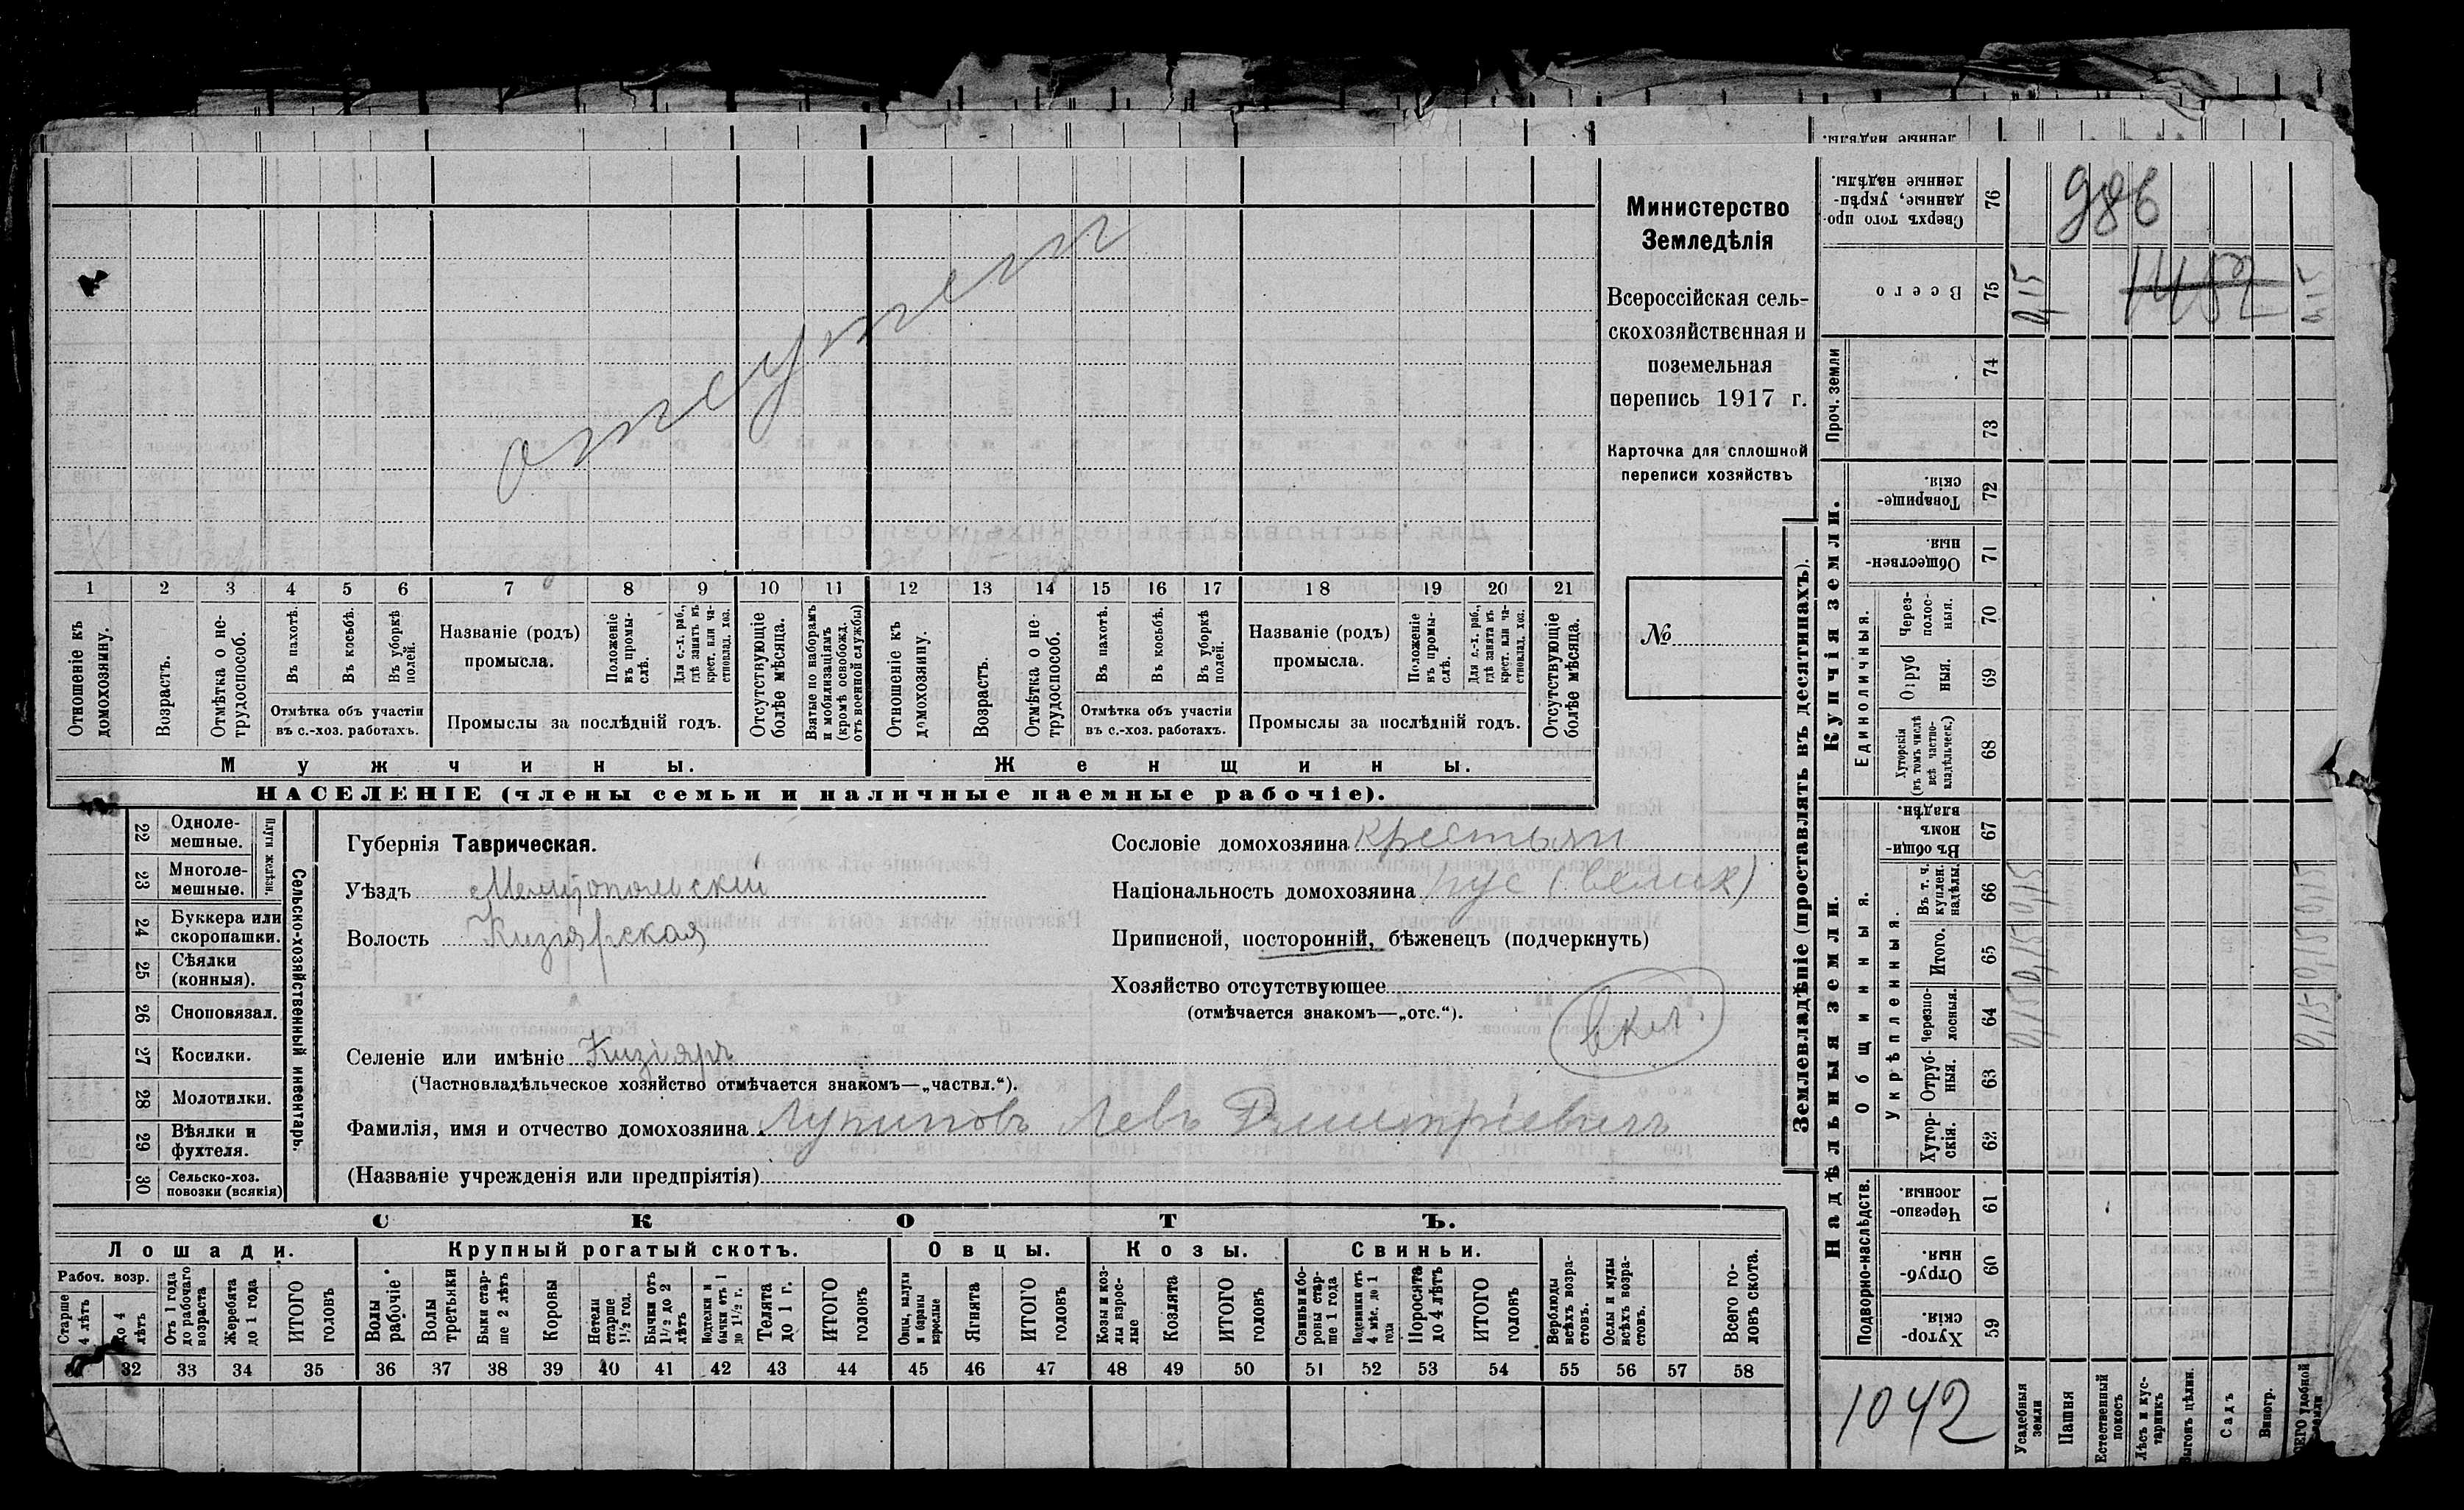 986
1482
отсутст
Министерство
Земледѣлія
Всероссійская сель-
скохозяйственная и
поземельная
перепись 1917 г.
Карточка для сплошной
переписи хозяйствъ
№
1 2 3 4 5 6 7 8 9 10 11 12 13 14 15 16 17 18 19 20 21
Отношеніе къ домохозяину.
Возрастъ.
Отмѣтка о не-трудоспособ.
Въ пахотѣ.
Въ косьбѣ.
Въ уборкѣ полей.
Отмѣтка объ участіи
въ с.-хоз. работахъ.
Названіе (родъ)
промысла.
Положеніе въ промы-слѣ.
Для с.-х. раб., гдѣ занятъ въ крест. или ча-стновлад. хоз.
Промыслы за послѣдній годъ.
Отсутствующіе болѣе мѣсяца.
Взятые по наборамъ и мобилизаціямъ (кромѣ освобожд. отъ военной службы)
Отношеніе къ домохозяину.
Возрастъ.
Отмѣтка о не-трудоспособ.
Въ пахотѣ.
Въ косьбѣ.
Въ уборкѣ полей.
Отмѣтка объ участіи
въ с.-хоз. работахъ.
Названіе (родъ)
промысла.
Положеніе въ промы-слѣ.
Для с.-х. раб., гдѣ занята въ крест. или ча-стновлад. хоз.
Промыслы за послѣдній годъ.
Отсутствующіе болѣе мѣсяца.
Мужчины.
Женщины.
НАСЕЛЕНІЕ (члены семьи и наличные наемные рабочіе).
22 Одноле-мешные.
23 Многоле-мешные.
Плуги желѣзн.
24 Буккера или скоропашки.
25 Сѣялки (конныя).
26 Сноповязал.
27 Косилки.
28 Молотилки.
29 Вѣялки и фухтеля.
30 Сельско-хоз. повозки (всякія)
Сельско-хозяйственный инвентарь.
Губернія Таврическая.
Уѣздъ Мелитопольскій
Волость Кизіярская
Сословіе домохозяина крестьян
Національность домохозяина рус (велик)
Приписной, посторонній, бѣженецъ (подчеркнуть)
Хозяйство отсутствующее
(отмѣчается знакомъ—„отс.“).
вкл.
Селеніе или имѣніе Кизіяръ
(Частновладѣльческое хозяйство отмѣчается знакомъ—„частвл.“).
Фамилія, имя и отчество домохозяина Левъ Дмитріевичъ
(Названіе учрежденія или предпріятія)
СКОТЪ.
Лошади.
Крупный рогатый скотъ.
Овцы.
Козы.
Свиньи.
Рабоч. возр.
Старше 4 лѣтъ
до 4 лѣтъ
Отъ 1 года до рабочаго возраста
Жеребята до 1 года
ИТОГО головъ
Волы рабочіе
Волы третьяки
Быки стар-ше 2 лѣтъ
Коровы
Нетели старше 1½ год.
Бычки отъ 1½ до 2 лѣтъ
Подтелки и бычки отъ 1 до 1½ г.
Телята до 1 г.
ИТОГО головъ
Овцы, валухи и бараны взрослые
Ягнята
ИТОГО головъ
Козы и коз-лы взрос-лые
Козлята
ИТОГО головъ
Свиньи и бо-ровы стар-ше 1 года
Подсвинки отъ 4 мѣс. до 1 года
Поросята до 4 лѣтъ
ИТОГО головъ
Верблюды всѣхъ возра-стовъ.
Ослы и мулы всѣхъ возра-стовъ.
Всего го-ловъ скота.
32 33 34 35 36 37 38 39 40 41 42 43 44 45 46 47 48 49 50 51 52 53 54 55 56 57 58
Землевладѣніе (проставлять въ десятинахъ).
Купчія земли.
Надѣльныя земли.
Сверхъ того про-данные, укрѣп-ленные надѣлы. 76
Всего 75
Проч. земли 74 73
Товарище-скія. 72
Обществен-ныя. 71
Единоличныя.
Через-полос-ныя. 70
Отруб ныя. 69
Хуторскія (въ томъ числѣ всѣ частно-владѣльческ.) 68
Общинныя.
Въ общи-номъ владѣн. 67
Укрѣпленныя.
Въ т. ч. куплен. надѣлы. 66
Итого. 65
Черезпо-лосныя. 64
Отруб-ныя. 63
Хутор-скія. 62
Подворно-наслѣдств.
Черезпо-лосныя. 61
Отруб-ныя. 60
Хутор-скія. 59
0,15
0,15
0,15 0,15 0,15
0,15 0,15 0,15
1042
Усадебныя земли
Пашня
Естественный покосъ
Лѣсъ и кус-тарникъ
Выгонъ цѣлин.
Садъ
Виногр.